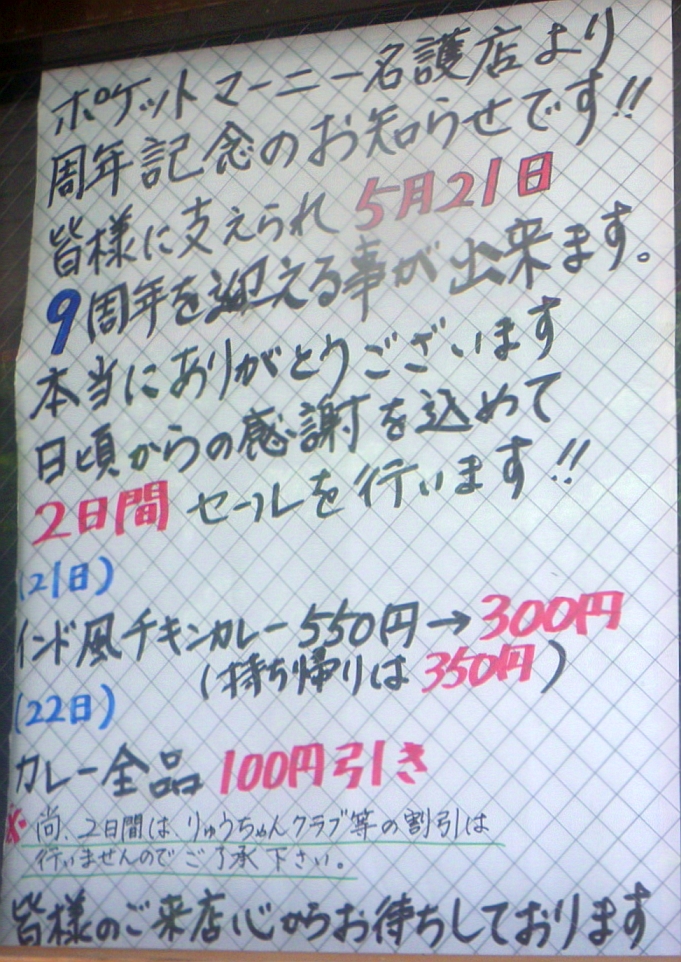 ポケットマーニー名護店より
周年記念のお知らせです!!
皆様に支えられ5月21日
9周年を迎える事が出来ます。
本当にありがとうございます
日頃からの感謝を込めて
2日間セールを行います!!
(21日)
インド風チキンカレー550円→300円
(持ち帰りは350円)
(22日)
カレー全品100円引き
※尚、2日間は、りゅうちゃんクラブ等の割引は
行いませんのでご了承下さい。
皆様のご来店心からお待ちしております